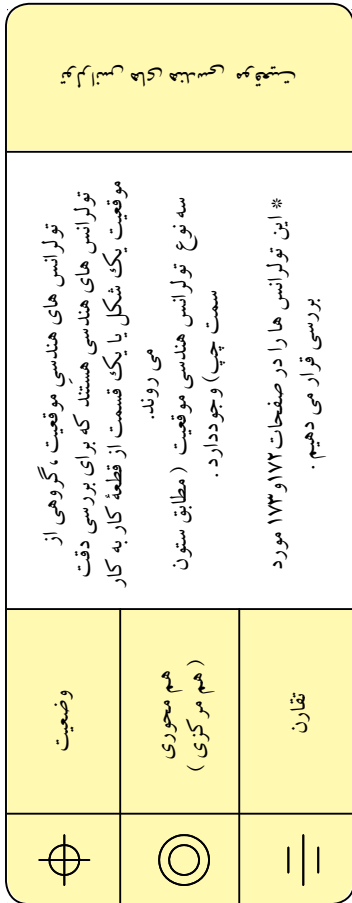 تولرانس های هندسی موقعیت
تولرانس های هندسیِ موقعیت ، گروهی از
تولرانس های هندسی هستَند که برای بررسی دقت
موقعیت یک شکل یا یک قسمت از قطعهٔ کار به کار
می روند.
سه نوع تولرانس هندسی موقعیت ( مطابق ستون
سمت چپ) وجوددارد .
* این تولرانس ها را در صفحات ۱۷۲و ۱۷۳ مورد
بررسی قرار می دهیم .
وضعیت
هم محوری
( هم مرکزی )
تقارن